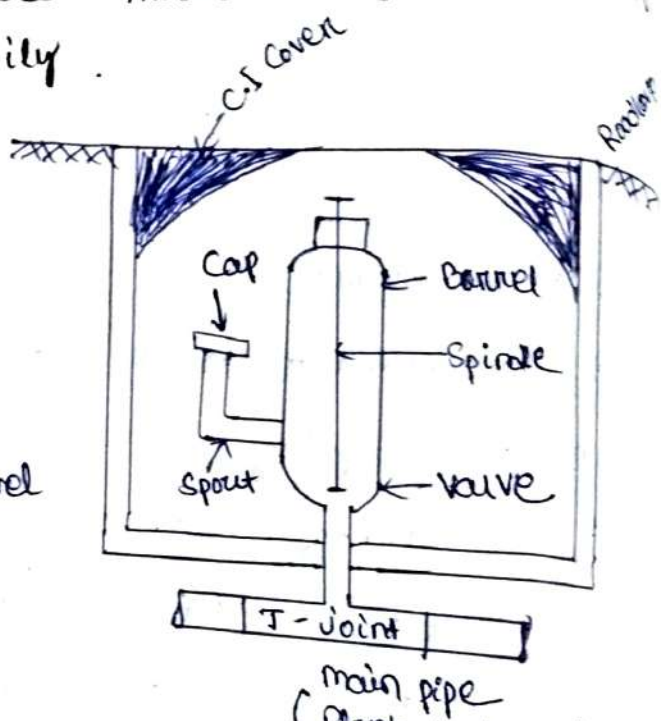 ily.
C.I Cover
Cap
Barrel
Spindle
Spout
Valve
T-joint
main pipe